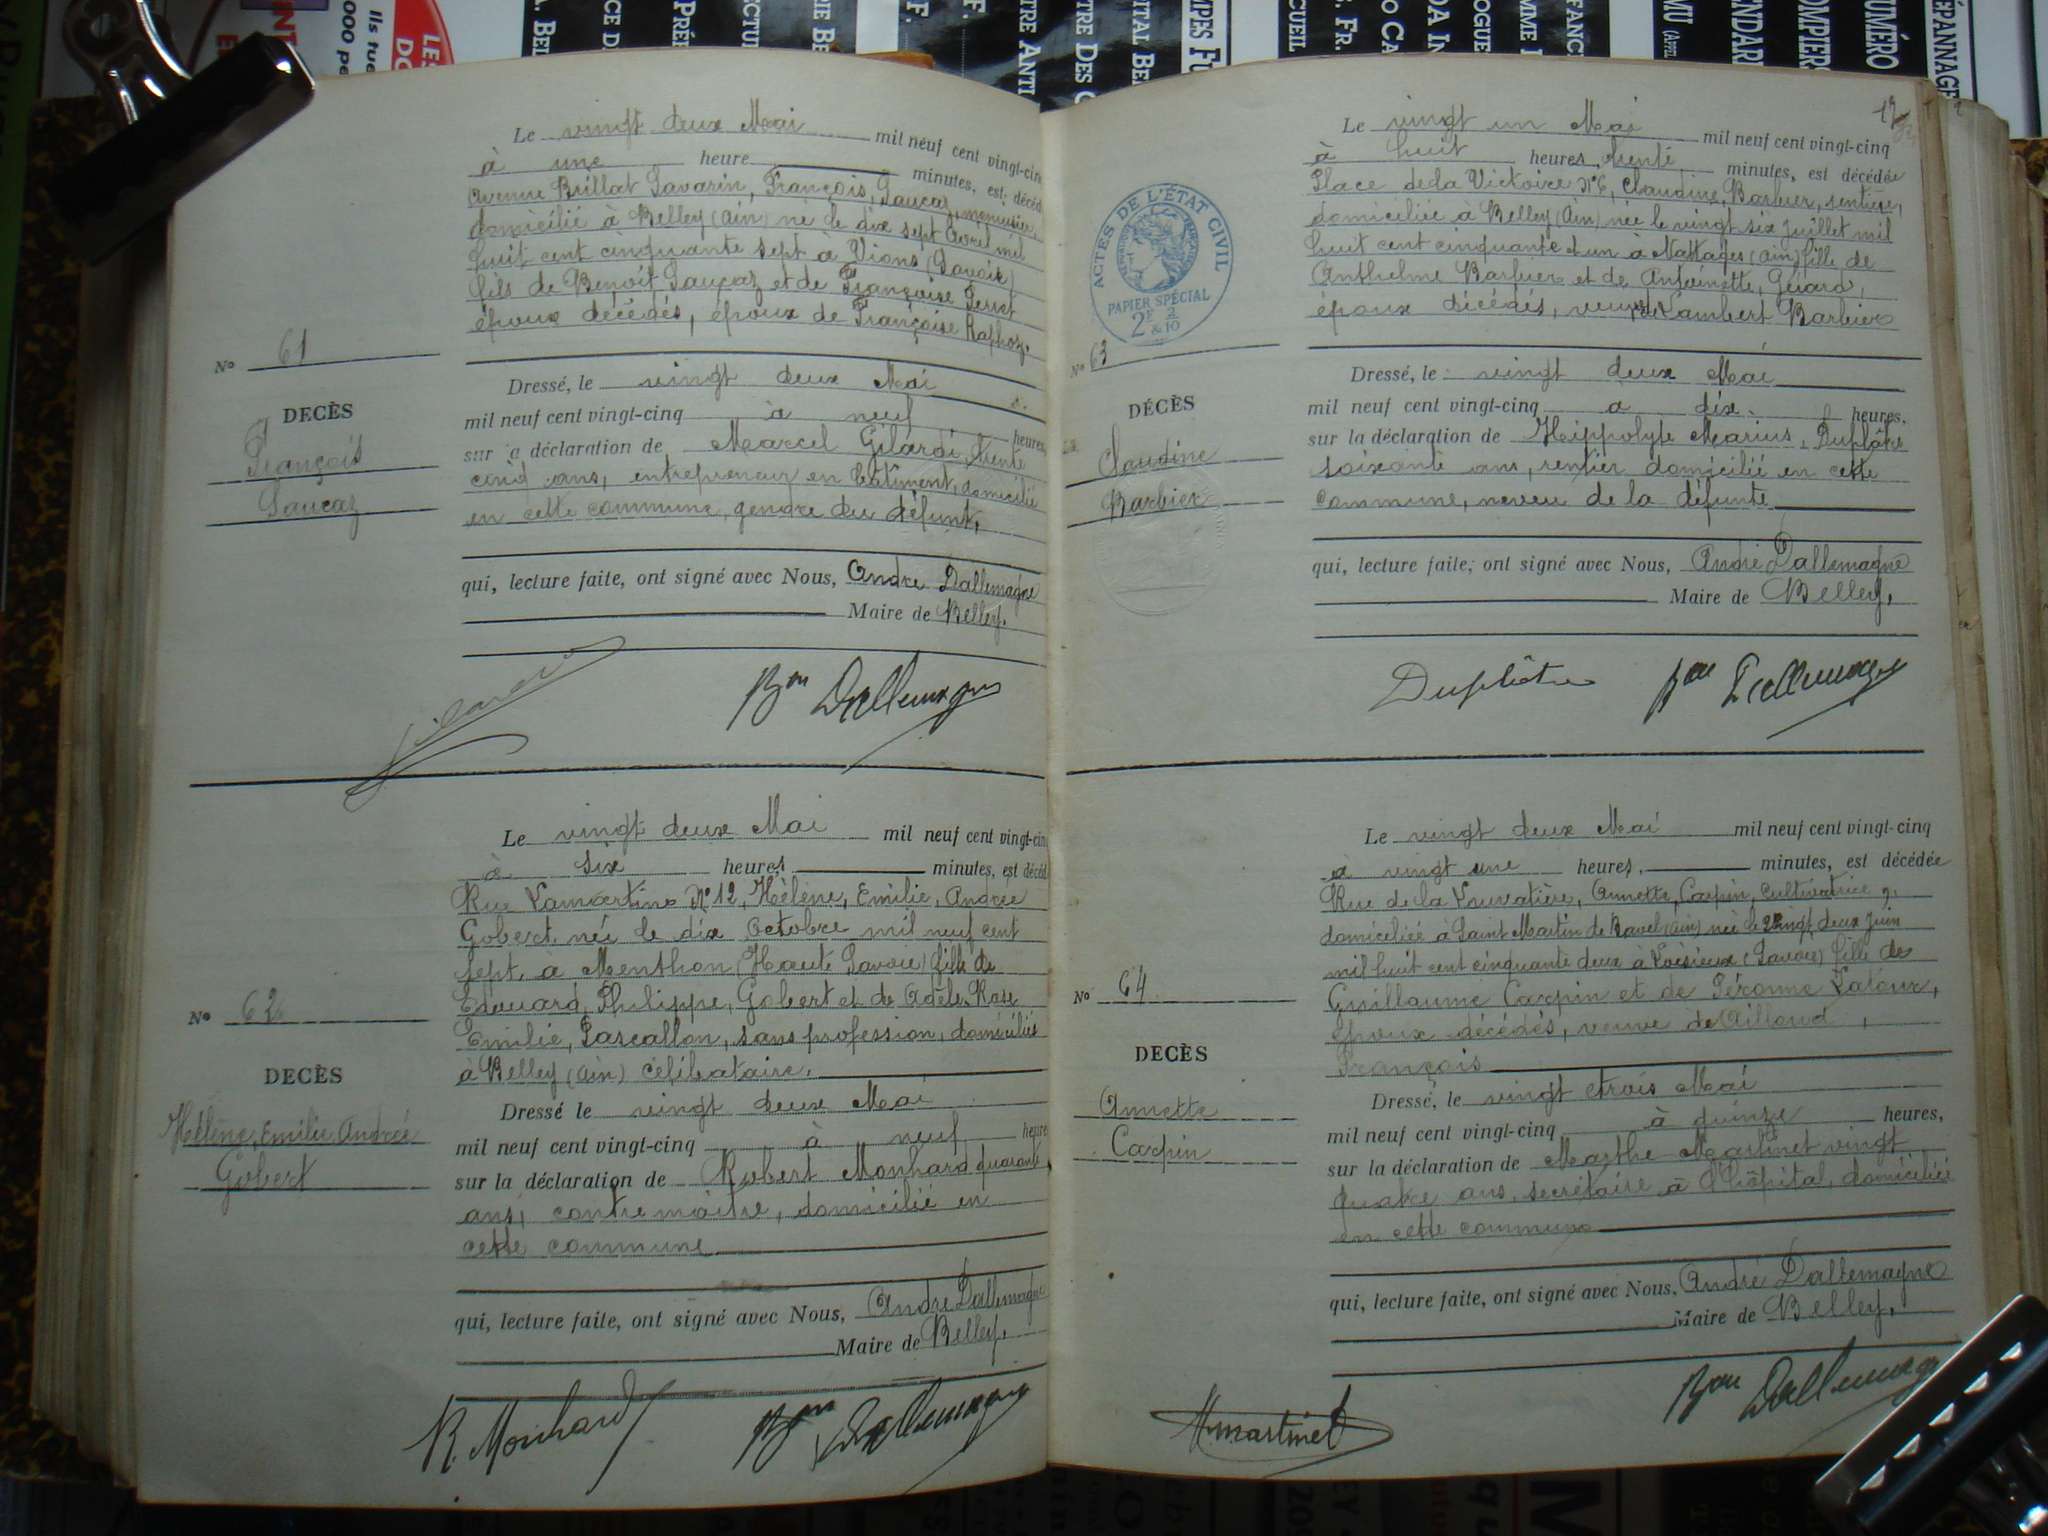 Le vingt deux Mai mil neuf cent vingt-cinq
à une heure minutes, est décéd
Avenue Brillat Savarin, François, Saucaz, menuisier,
domicilié à Belley (Ain) né le dix sept Avril mil
huit cent cinquante sept à Vions (Savoie)
fils de Benoît Saucaz et de Françoise Perret
époux décédés, époux de Françoise Raphoz.
No 61
DECÈS
François
Saucaz
Dressé, le vingt deux Mai
mil neuf cent vingt-cinq à neuf heures,
sur a déclaration de Marcel Gilardi, trente
cinq ans, entrepreneur en bâtiment, domicilié
en cette commune, gendre du défunt,
qui, lecture faite, ont signé avec Nous, André Dallemagne
Maire de Belley.
Gilardi
Bon Dallemagne
Le vingt deux Mai mil neuf cent vingt-cinq
à six heures minutes, est décéd
Rue Lamartine No 12, Hélène, Emilie, Andrée
Gobert née le dix Octobre mil neuf cent
sept à Menthon (Haute Savoie) fille de
Edouard, Philippe, Gobert et de Adèle Rose
Emilie, Pascallon, sans profession, domiciliés
à Belley (Ain) célibataire.
No 62
DECÈS
Hélène, Emilie, Andrée
Gobert
Dressé le vingt deux Mai
mil neuf cent vingt-cinq à neuf heures
sur la déclaration de Robert Monhard quarante
ans, contre maître, domicilié en
cette commune
qui, lecture faite, ont signé avec Nous, André Dallemagne
Maire de Belley.
R. Monhard
Bon Dallemagne
19
Le vingt un Mai mil neuf cent vingt-cinq
à huit heures, trente minutes, est décédée
Place de la Victoire No 6, Claudine, Barbier, rentière,
domiciliée à Belley (Ain) née le vingt six juillet mil
huit cent cinquante et un à Nattages (Ain) fille de
Anthelme Barbier et de Antoinette, Gérard,
époux décédés, veuve de Lambert Barbier
ACTES DE L'ÉTAT CIVIL
PAPIER SPÉCIAL
2F 2
& 10
No 63
DÉCÈS
Claudine
Barbier
Dressé, le vingt deux Mai
mil neuf cent vingt-cinq a dix heures,
sur la déclaration de Hippolyte Marius, Duplâtre
soixante ans, rentier domicilié en cette
commune, neveu de la défunte
qui, lecture faite, ont signé avec Nous, André Dallemagne
Maire de Belley.
Duplâtre
Bon Dallemagne
Le vingt deux Mai mil neuf cent vingt-cinq
à vingt une heures, minutes, est décédée
Rue de la Annette, Carpin, Cultivatrice
domiciliée à Saint Martin de Bavel (Ain) née le vingt deux juin
mil huit cent cinquante deux à Loisieux (Savoie) fille de
Guillaume Carpin et de Péronne Latour,
époux décédés, veuve de Ailloud,
François
No 64
DECÈS
Annette
Carpin
Dressé, le vingt trois Mai
mil neuf cent vingt-cinq à quinze heures,
sur la déclaration de Marthe Martinet vingt
quatre ans, secrétaire à l'hôpital, domiciliée
en cette commune
qui, lecture faite, ont signé avec Nous, André Dallemagne
Maire de Belley.
M martinet
Bon Dallemagne